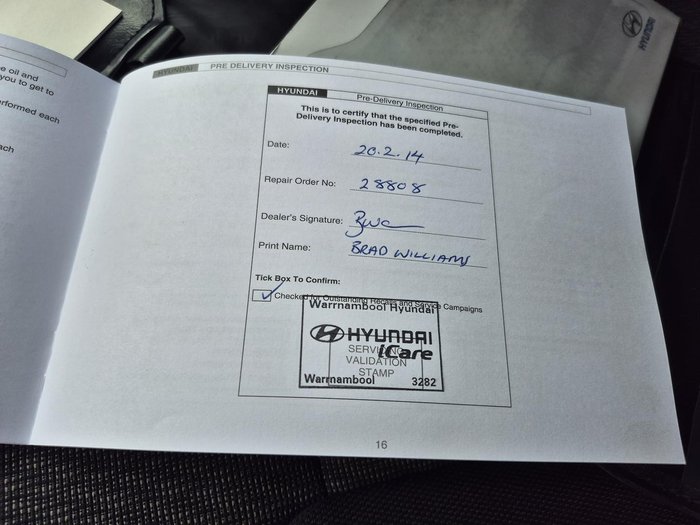 e oil and
you to get to
erformed each
ach
HYUNDAI PRE DELIVERY INSPECTION
HYUNDAI Pre-Delivery Inspection
This is to certify that the specified Pre-
Delivery Inspection has been completed.
Date: 20.2.14
Repair Order No: 28808
Dealer's Signature:
Print Name: BRAD WILLIAMS
Tick Box To Confirm:
Checked for Outstanding Recalls and Service Campaigns
Warrnambool Hyundai
HYUNDAI
iCare
SERVICING
VALIDATION
STAMP
Warrnambool 3282
16
HYUNDAI